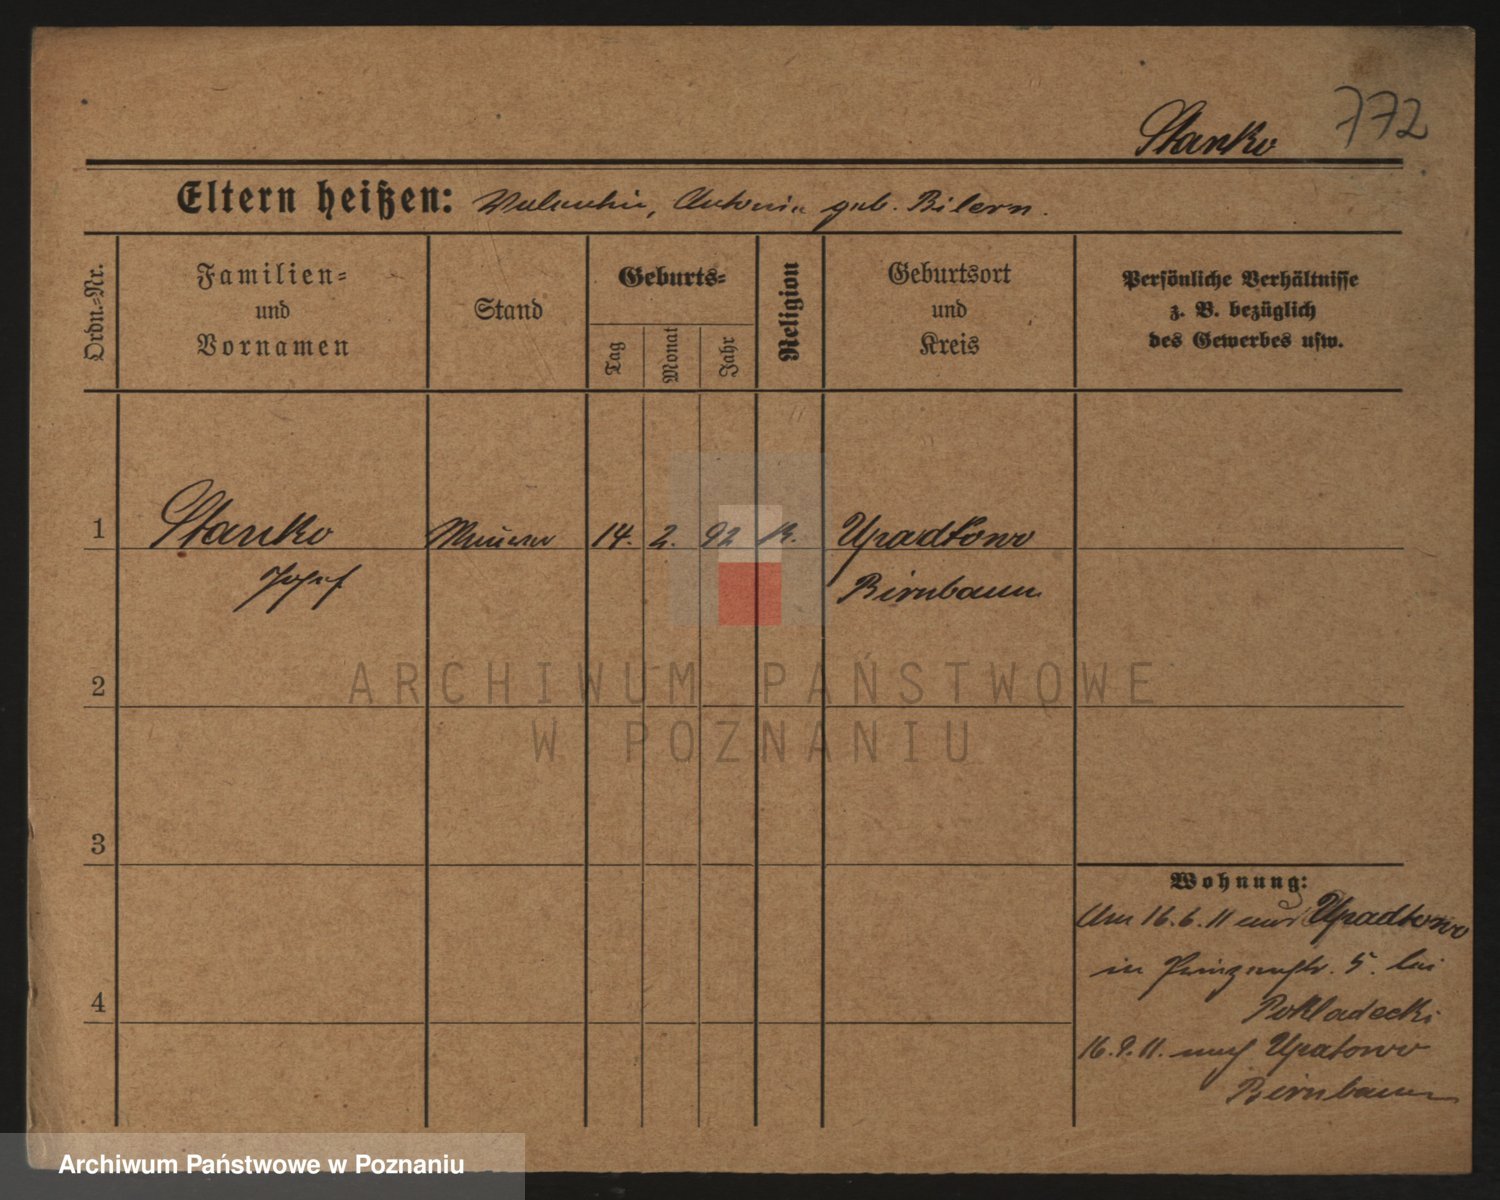 772
Stanko
Eltern heißen: Valentin, Antonia geb. Bilern.
Ordn.-Nr.
Familien-
und
Vornamen
Stand
Geburts-
Tag
Monat
Jahr
Religion
Geburtsort
und
Kreis
Persönliche Verhältnisse
z. B. bezüglich
des Gewerbes usw.
1 Stanko Maurer 14. 2. 92 k. Upadtowo
Josef Birnbaum
2
ARCHIWUM PAŃSTWOWE
W POZNANIU
3
Wohnung:
Am 16.6.11 aus Upadtowo
in Prinzenstr. 5. bei
Pokladecki
4
16.9.11. nach Upatowo
Birnbaum
Archiwum Państwowe w Poznaniu